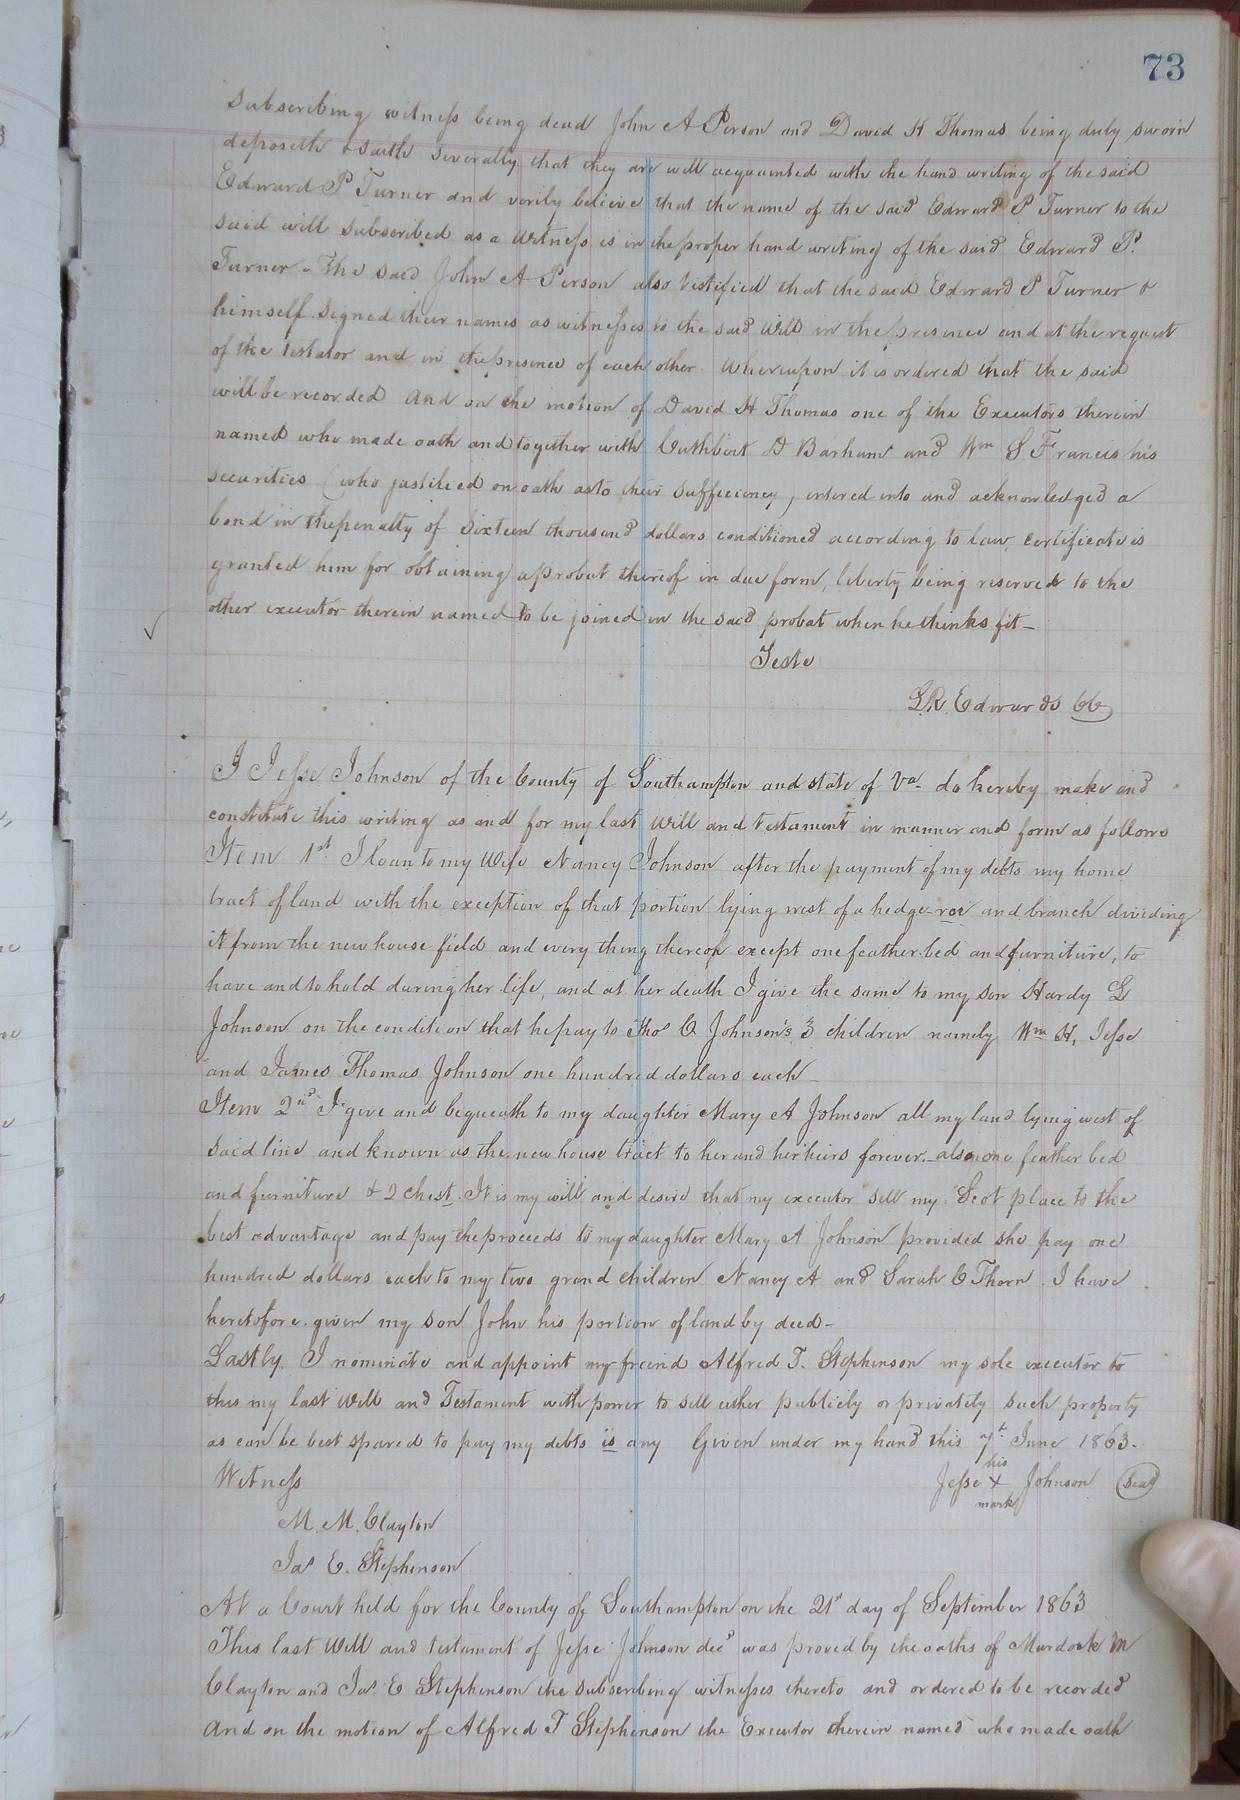 73
Subscribing witness being dead John A Person and David H Thomas being duly sworn
deposeth & saith severally that they are well acquainted with the hand writing of the said
Edward P Turner and verily believe that the name of the said Edward P Turner to the
said will subscribed as a witness is in the proper hand writing of the said Edward P.
Turner - The said John A Person also testified that the said Edward P Turner &
himself signed their names as witnesses to the said will in the presence and at the request
of the testator and in the presence of each other whereupon it is ordered that the said
will be recorded And on the motion of David H Thomas one of the Executors therein
named who made oath and together with Cuthbert D Barham and Wm S Francis his
securities (who justified on oath as to their sufficiency) entered into and acknowledged a
bond in the penalty of Sixteen thousand dollars conditioned according to law, certificate is
granted him for obtaining a probat thereof in due form, liberty being reserved to the
other executor therein named to be joined in the said probat when he thinks fit -
Teste
L R Edwards CC
I Jesse Johnson of the County of Southampton and state of Va. do hereby make and
constitute this writing as and for my last will and testament in manner and form as follows
Item 1st I loan to my Wife Nancy Johnson after the payment of my debts my home
tract of land with the exception of that portion lying west of a hedge roe and branch dividing
it from the new house field and every thing thereon except one feather bed and furniture, to
have and to hold during her life, and at her death I give the same to my son Hardy L
Johnson on the condition that he pay to Thos C Johnson's 3 children namely Wm H, Jesse
and James Thomas Johnson one hundred dollars each -
Item 2nd I give and bequeath to my daughter Mary A Johnson all my land lying west of
said line and known as the new house tract to her and her heirs forever - also one feather bed
and furniture & 2 chest. It is my will and desire that my executor sell my Scot place to the
best advantage and pay the proceeds to my daughter Mary A Johnson provided she pay one
hundred dollars each to my two grand children Nancy A and Sarah C Thorn. I have
heretofore given my son John his portion of land by deed -
Lastly. I nominate and appoint my freind Alfred T. Stephenson my sole executor to
this my last will and Testament with power to sell either publicly or privately such property
as can be best spared to pay my debts is any Given under my hand this 7th June 1863.
Witness
his
Jesse X Johnson Seal
mark
M. M. Clayton
Jas E. Stephenson
At a Court held for the County of Southampton on the 21st day of September 1863
This last will and testament of Jesse Johnson decd was proved by the oaths of Murdock M
Clayton and Jas E Stephenson the subscribing witnesses thereto and ordered to be recorded
And on the motion of Alfred T Stephenson the Executor therein named who made oath